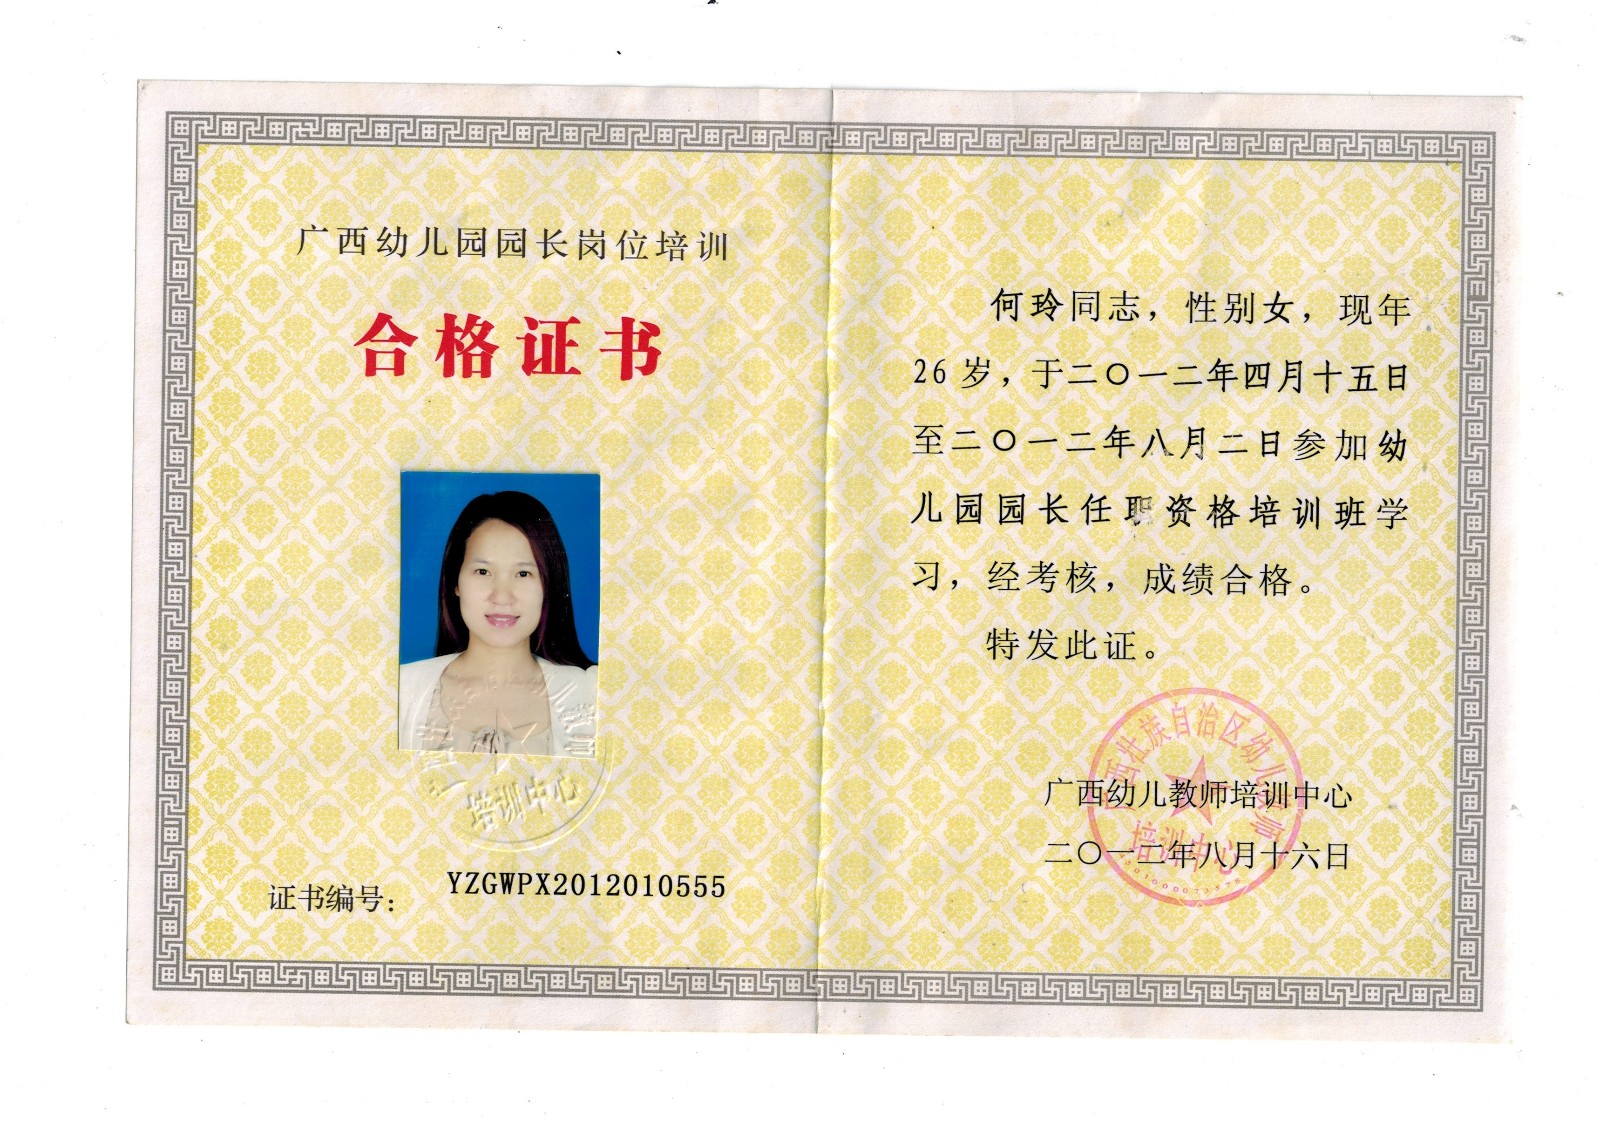 广西幼儿园园长岗位培训
合格证书
培训中心
证书编号：
YZGWPX2012010555
何玲同志，性别女，现年
26岁，于二〇一二年四月十五日
至二〇一二年八月二日参加幼
儿园园长任职资格培训班学
习，经考核，成绩合格。
特发此证。
广西壮族自治区幼儿教师
培训中心
广西幼儿教师培训中心
二〇一二年八月十六日